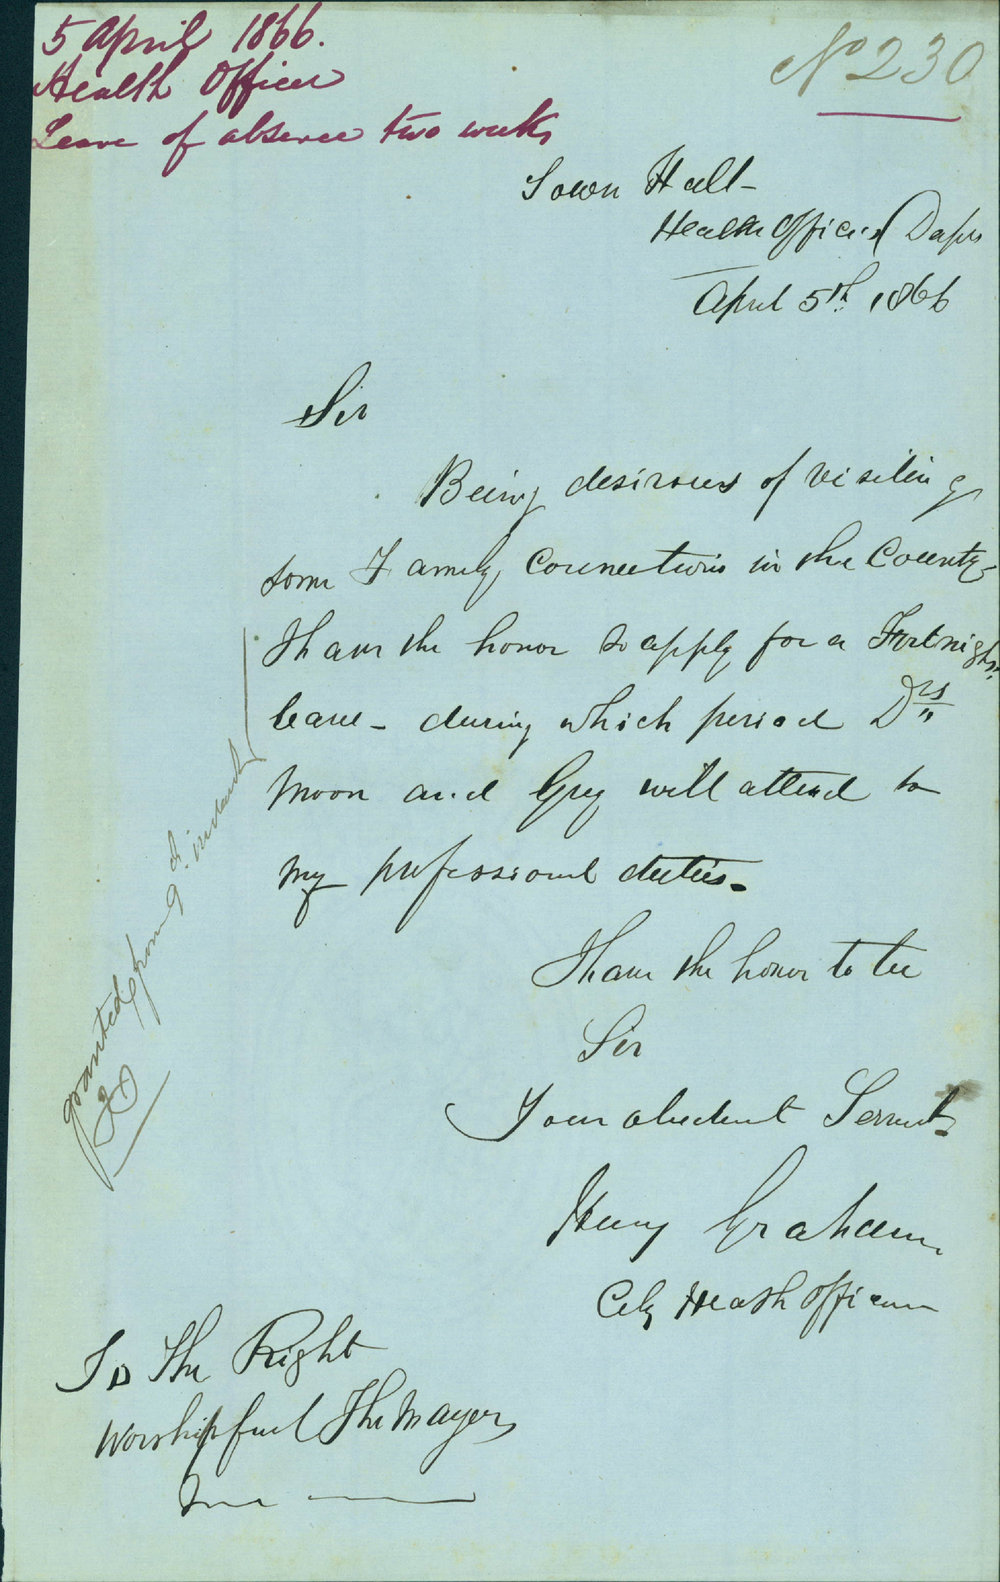 5 April 1866.
Health Officer
Leave of absence two weeks
No 230
Town Hall -
Health Officers Dept
April 5th 1866
Sir
Being desirous of visiting
some Family Connections in the County
I have the honor to apply for a Fortnights
leave - during which period Drs
Moon and Grey will attend to
my professional duties -
I have the honor to be
Sir
Your obedient Servant
Henry Graham
City Health Officer
To The Right
Worshipful The Mayor
granted from 9th instant